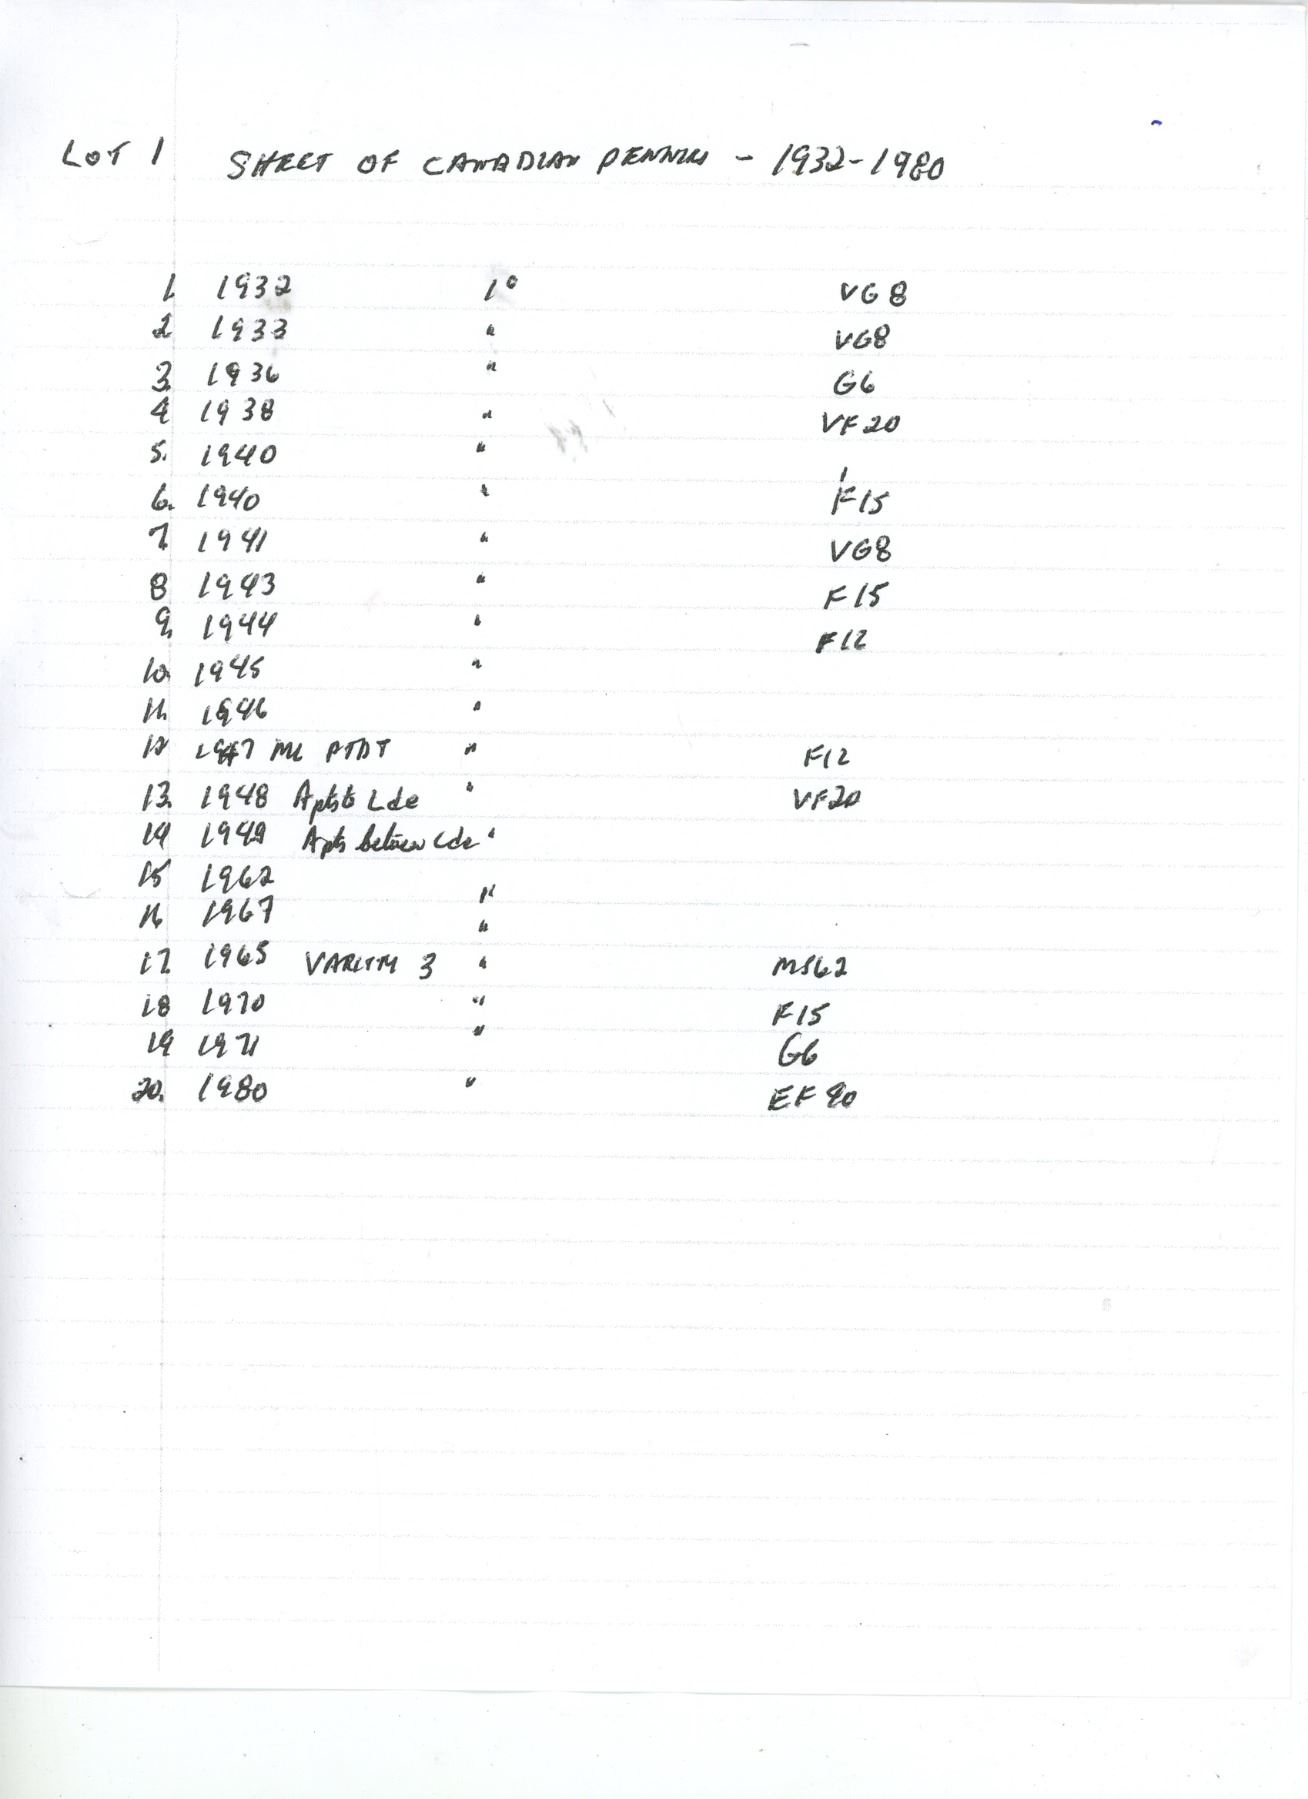 LOT 1 SHEET OF CANADIAN PENNIES - 1932-1980
1. 1932 1c VG8
2 1933 " VG8
3. 1936 " G6
4 1938 " VF20
5. 1940 "
6. 1940 " F15
7. 1941 " VG8
8 1943 " F15
9. 1944 " F12
10. 1945 "
11. 1946 "
12 1947 ML " F12
13. 1948 A pts to Lde " VF20
14 1949 A pts between Lde "
15 1962 "
16 1967 "
17. 1965 VARIETY 3 " MS62
18 1970 " F15
19 1971 " G6
20. 1980 " EF40